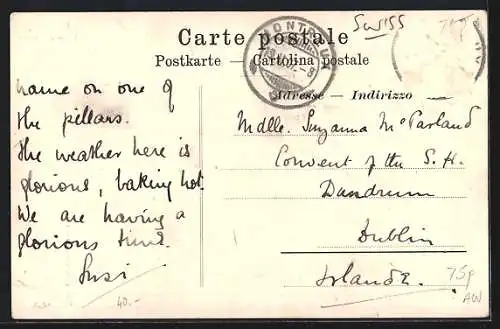 Carte postale
Postkarte — Cartolina postale
Adresse — Indirizzo
MONTREUX
Swiss
75p
name on one of
the pillars.
The weather here is
glorious, baking hot.
We are having a
glorious time.
Susi
Mdlle. Suzanna McParland
Convent of the S. H.
Dundrum
Dublin
Irlande.
40.-
75p
AW